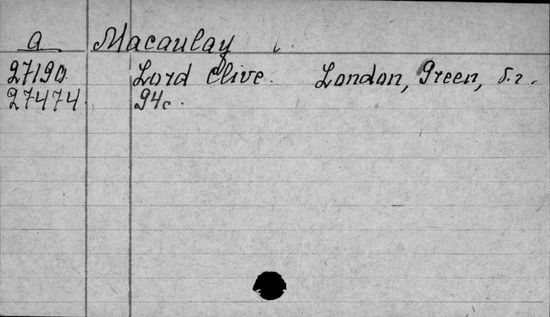 a Macaulay
27190 Lord Clive. London, Green,
27474 94c.